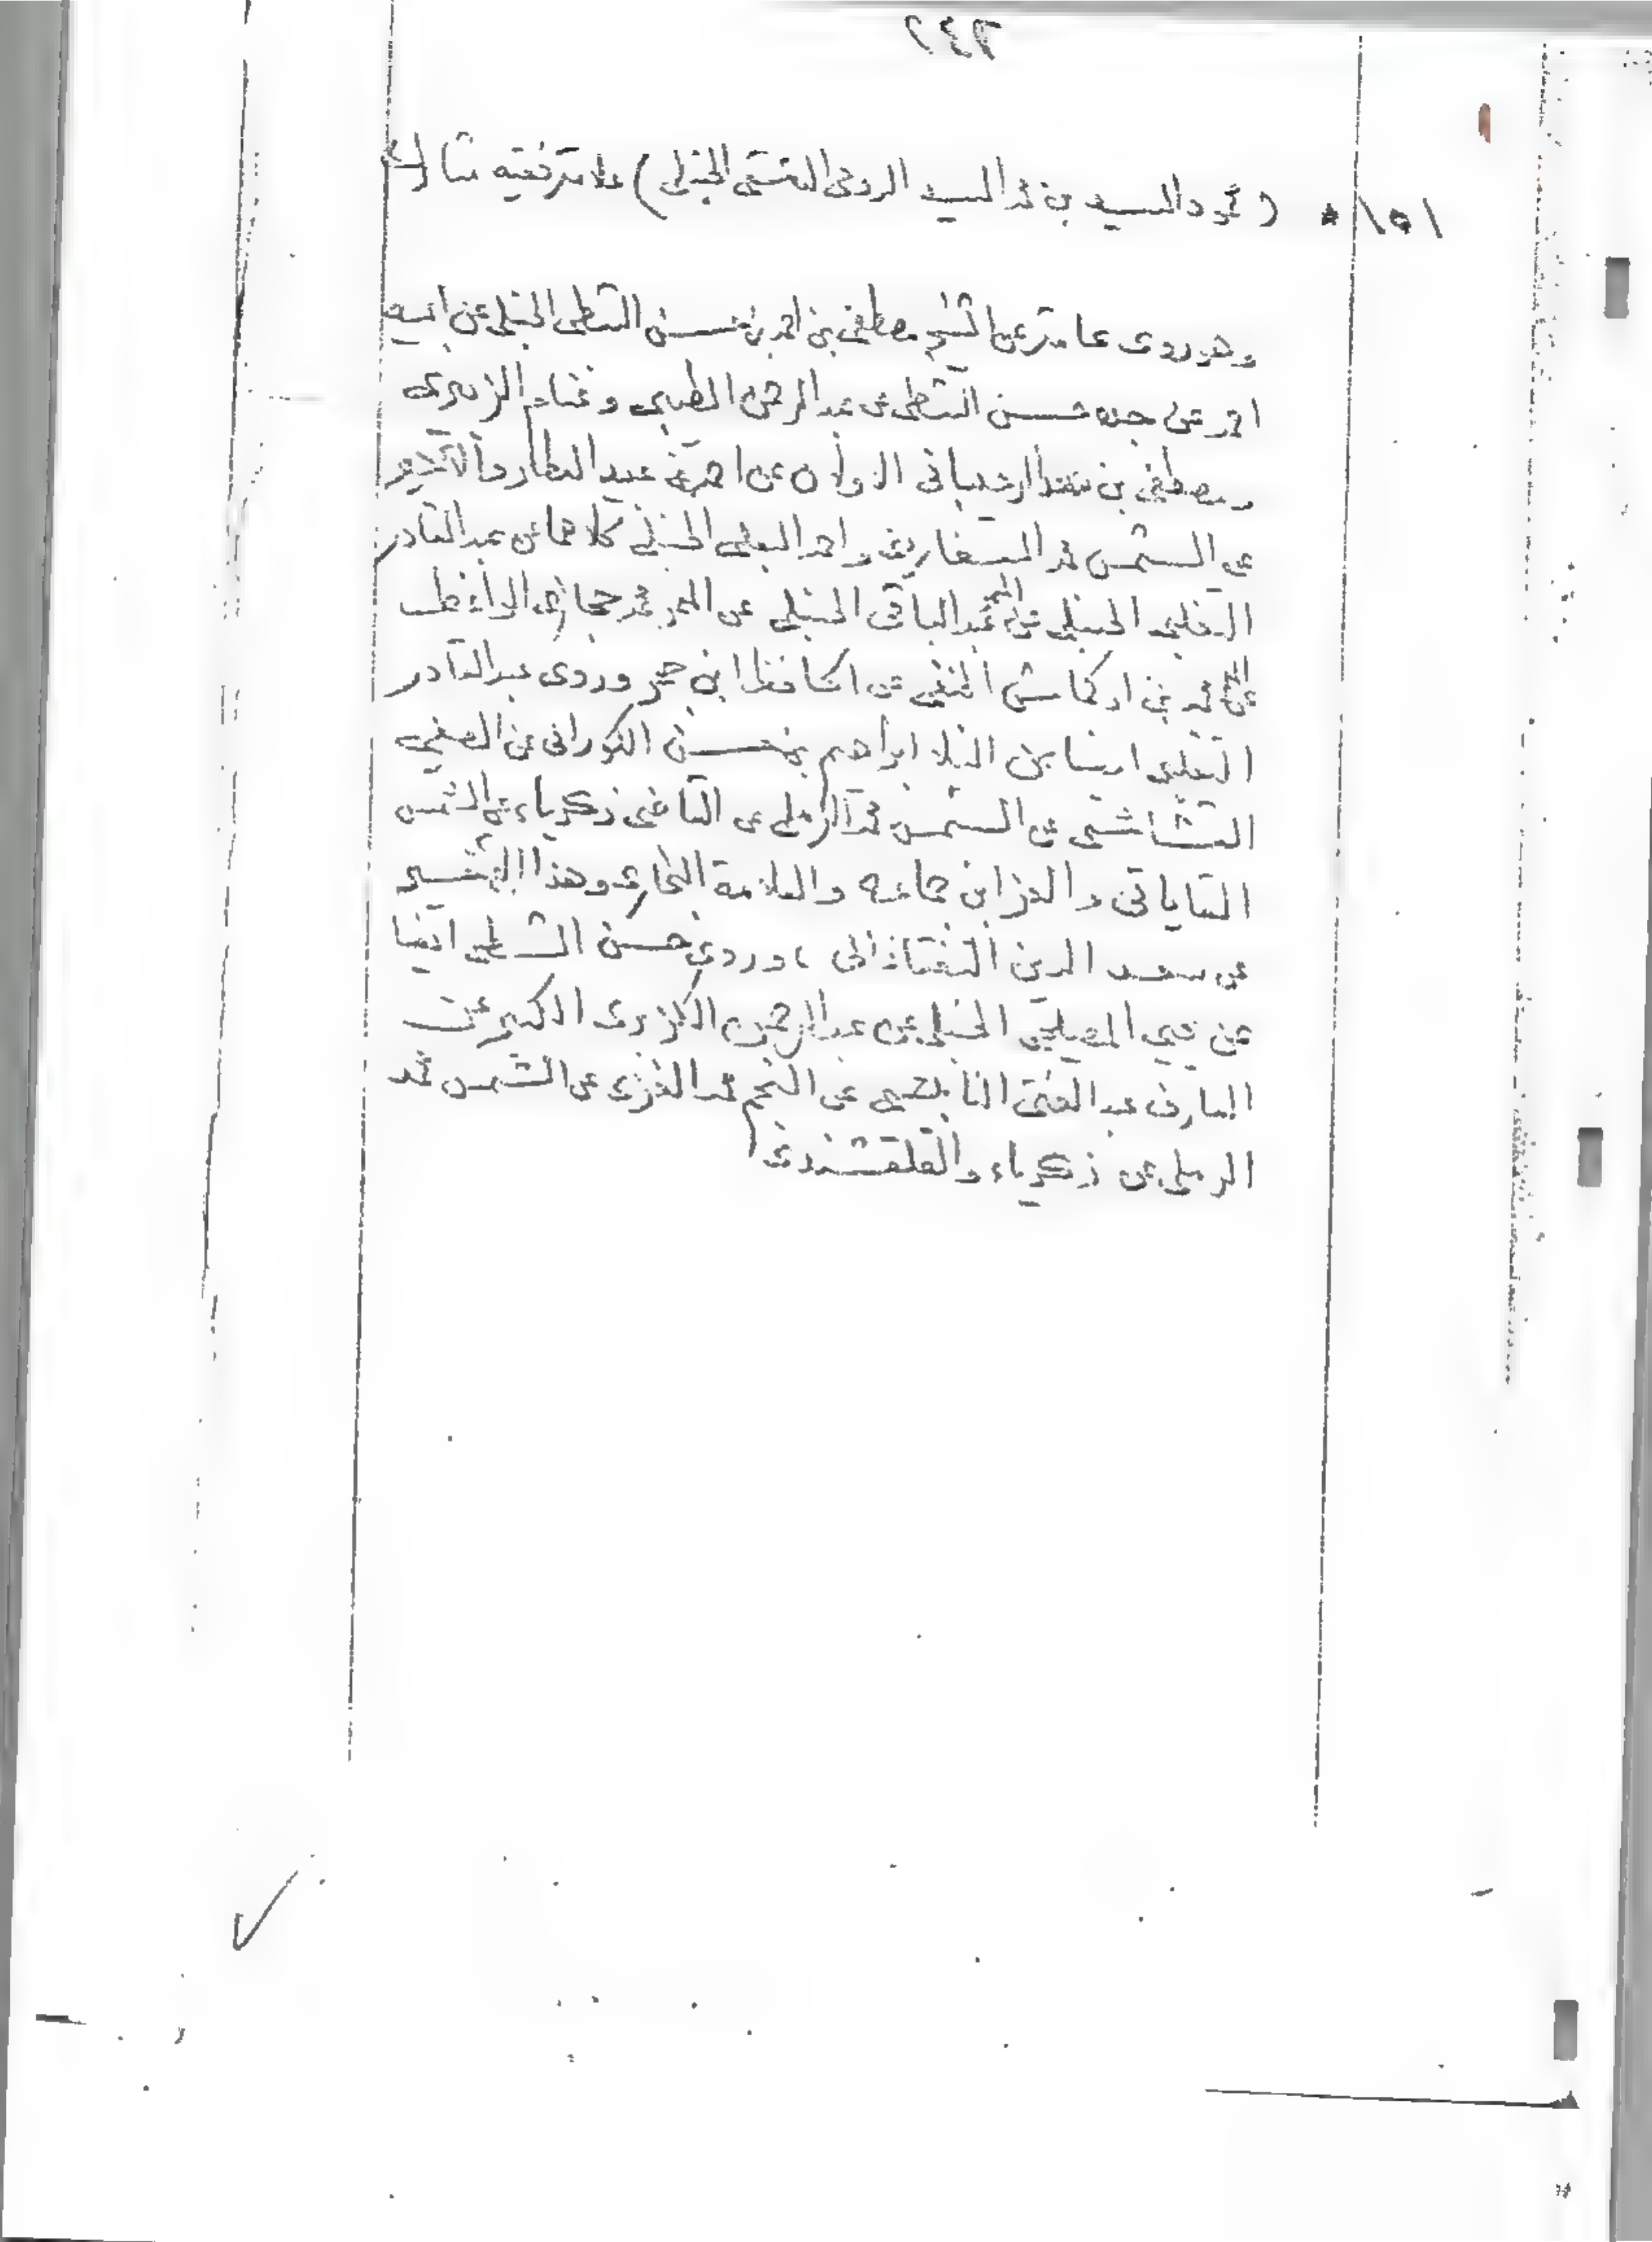 ٢٤٢
١٥١ * (محمود السيد بن محمد السيد الدمشقي الحنبلي) علامة فقيه
وهو روى عامة عن الشيخ مصطفى بن احمد بن حسن الشطي الحنبلي عن ابيه
احمد عن جده حسن الشطي عن عبد الرحمن الطيبي وغنام الزبيري
ومصطفى بن سعد الرحيباني الاولان عن احمد بن عبيد العطار والاخير
عن الشمس محمد السفاريني واحمد البعلي الحنبلي كلاهما عن عبد القادر
التغلبي الحنبلي عن عبد الباقي الحنبلي عن المعمر محمد حجازي الواعظ
عن محمد بن اركماش الحنفي عن الحافظ ابن حجر وروى عبد القادر
التغلبي ايضا عن الملا ابراهيم بن حسن الكوراني عن الصفي
القشاشي عن الشمس محمد الرملي عن القاضي زكرياء عن الشمس
القاياتي والعز ابن جماعه والعلامة البخاري وهذا الاخير
عن سعد الدين التفتازاني ، وروى حسن الشطي ايضا
عن الحنبلي عن عبد الرحمن الكزبري الكبير عن
العارف عبد الغني النابلسي عن النجم محمد الغزي عن الشمس محمد
الرملي عن زكرياء والقلقشندي